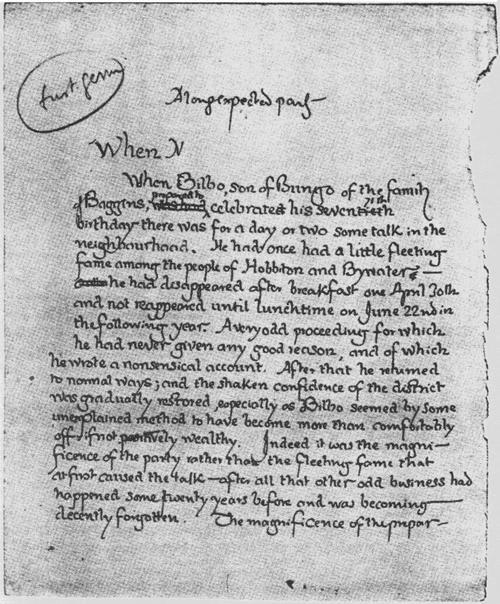 first germ
A long expected party
When N
When Bilbo, son of Bungo of the family
of Baggins, prepared to was had celebrated his seventieth 71st
birthday there was for a day or two some talk in the
neighbourhood. He had once had a little fleeting
fame among the people of Hobbiton and Bywater —
he had disappeared after breakfast one April 30th
and not reappeared until lunchtime on June 22nd in
the following year. A very odd proceeding for which
he had never given any good reason, and of which
he wrote a nonsensical account. After that he returned
to normal ways; and the shaken confidence of the district
was gradually restored, especially as Bilbo seemed by some
unexplained method to have become more than comfortably
off, if not positively wealthy. Indeed it was the magni-
ficence of the party rather than the fleeting fame that
at first caused the talk — after all that other odd business had
happened some twenty years before and was becoming
decently forgotten. The magnificence of the prepar-